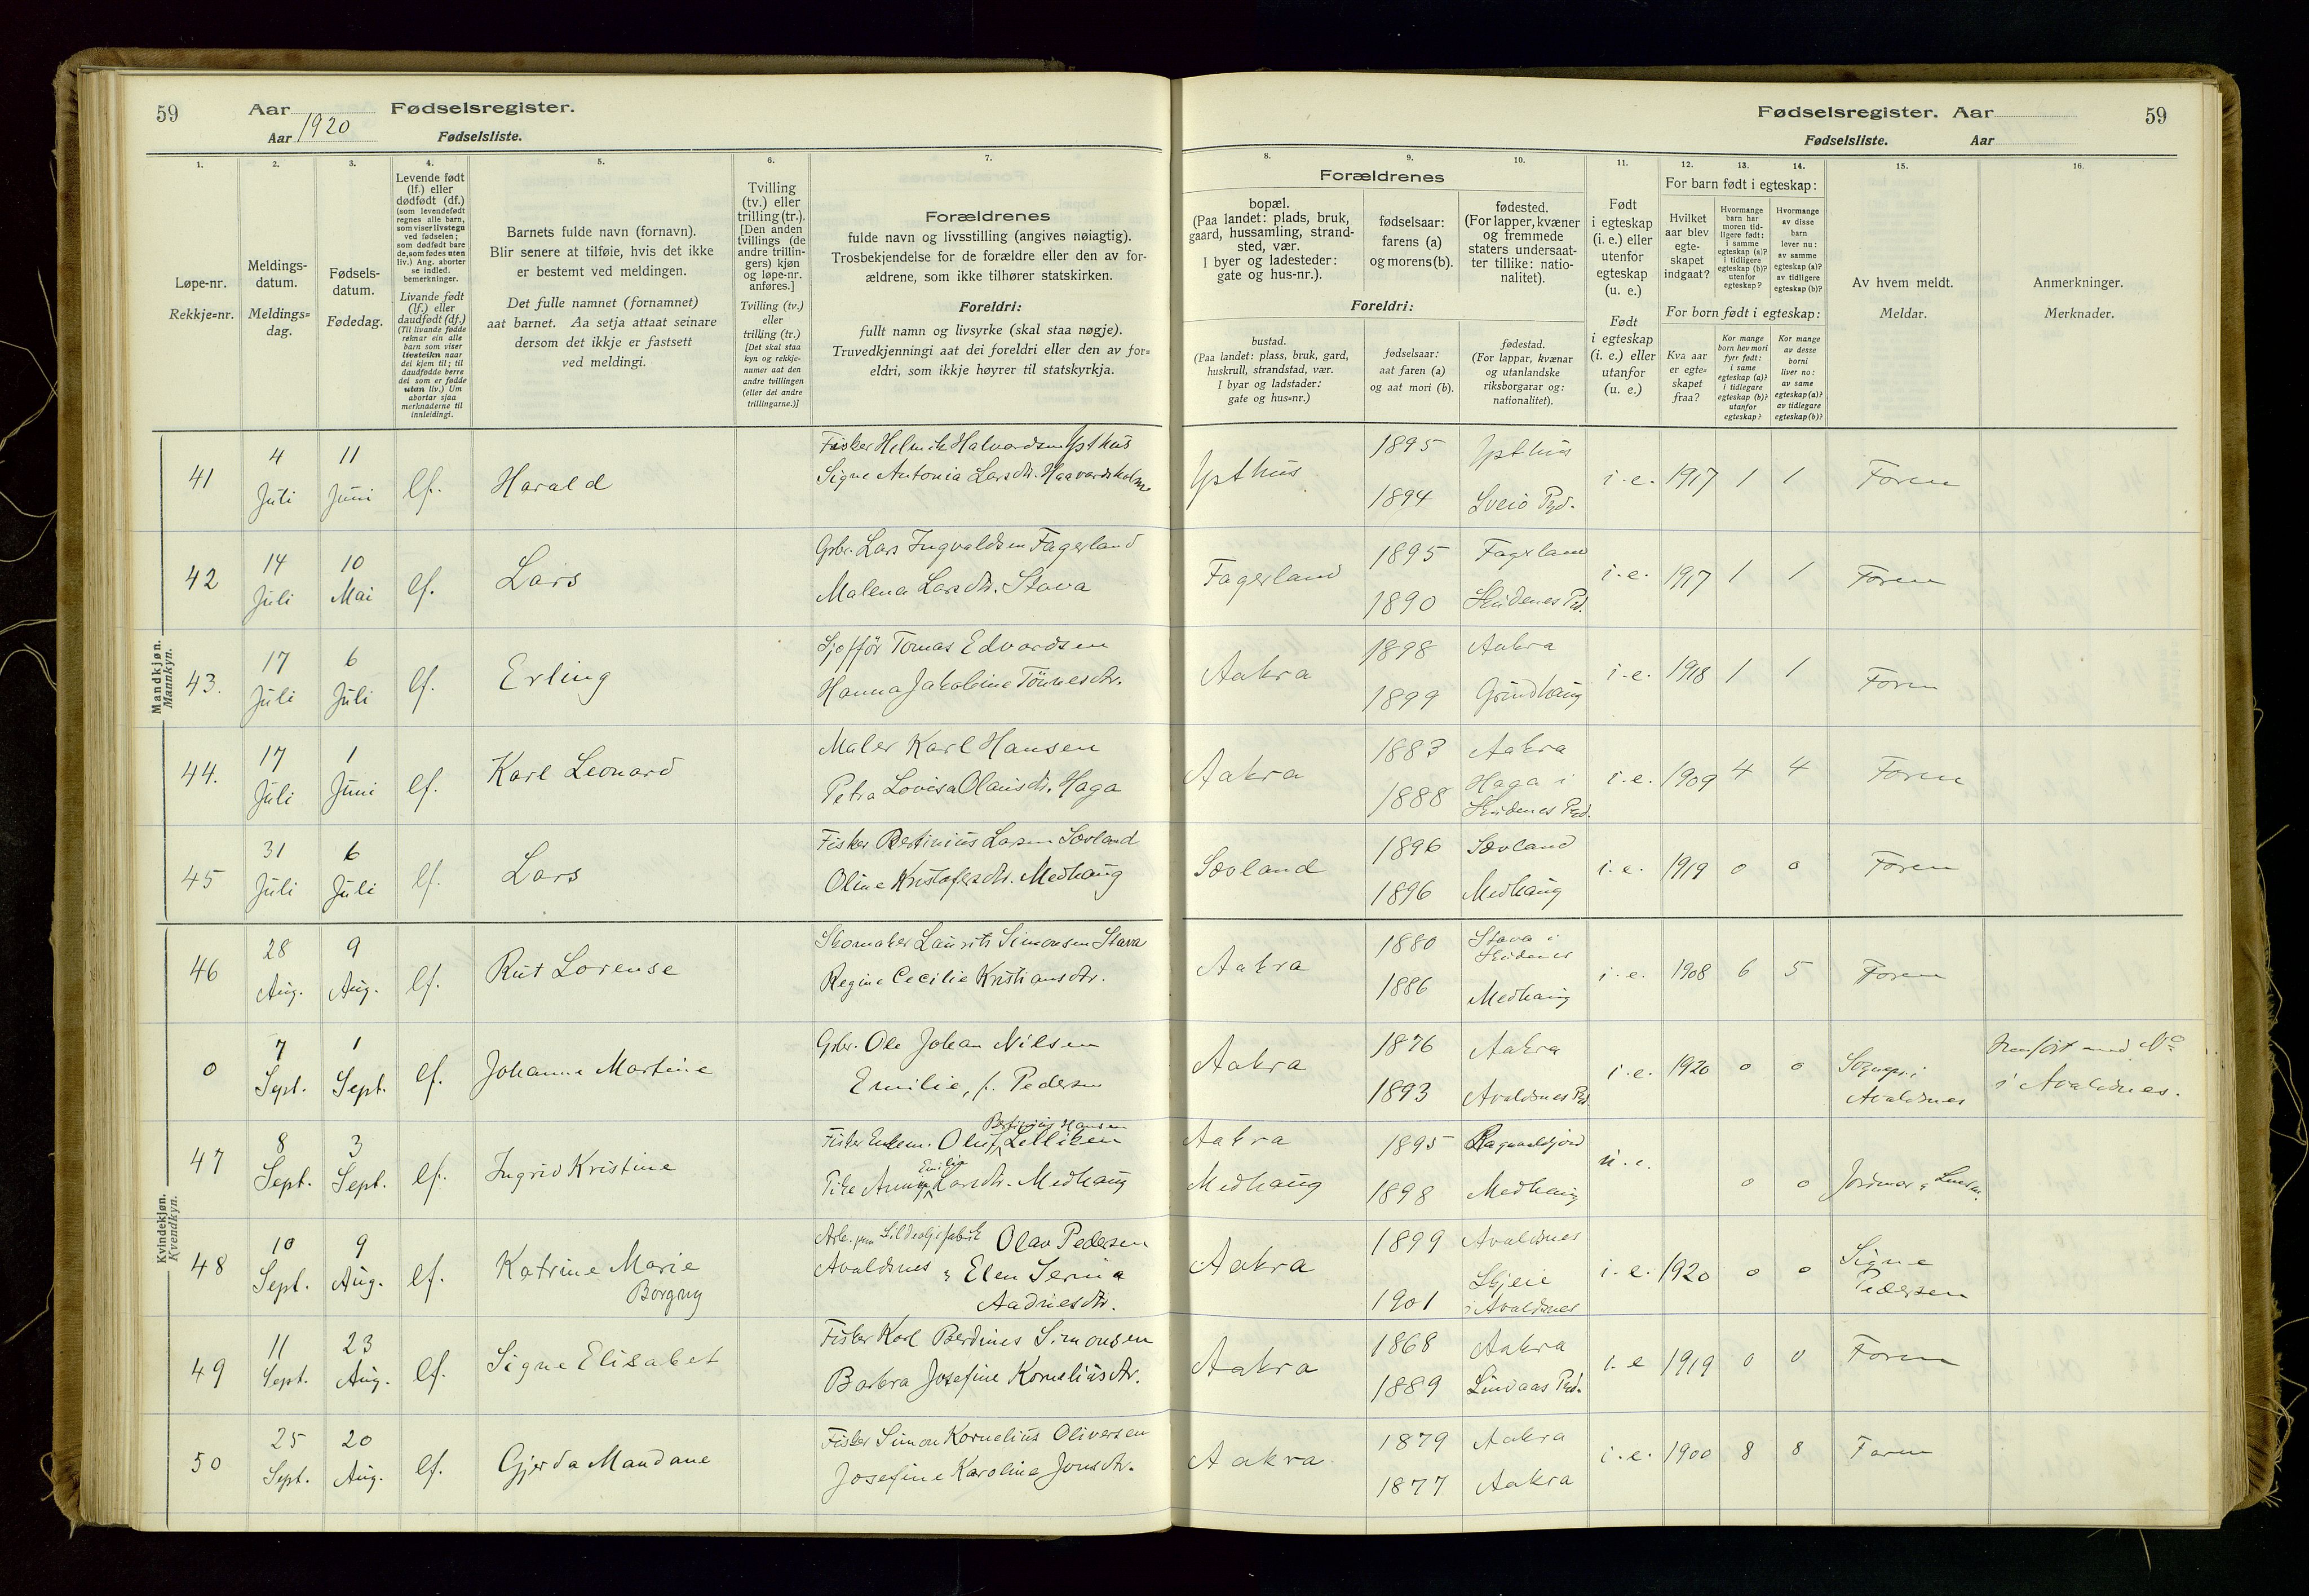 59
Aar 1920 Fødselsregister.
Aar Fødselsliste.
Fødselsregister. Aar 59
Fødselsliste. Aar
1. 2. 3. 4. 5. 6. 7.
Løpe-nr.
Rekkje=nr.
Meldings-
datum.
Meldings=
dag.
Fødsels-
datum.
Fødedag.
Levende født
(lf.) eller
dødfødt (df.)
(som levendefødt
regnes alle barn,
som viser livstegn
ved fødselen;
som dødfødt bare
de, som fødes uten
liv.) Ang. aborter
se indled.
bemerkninger.
Livande født
(lf.) eller
daudfødt (df.)
(Til livande fødde
reknar ein alle
barn som viser
livsteikn naar
dei kjem til; til
daudfødde berre
dei som er fødde
utan liv.) Um
abortar sjaa
merknaderne til
innleidingi.
Barnets fulde navn (fornavn).
Blir senere at tilføie, hvis det ikke
er bestemt ved meldingen.
Det fulle namnet (fornamnet)
aat barnet. Aa setja attaat seinare
dersom det ikkje er fastsett
ved meldingi.
Tvilling
(tv.) eller
trilling (tr.).
[Den anden
tvillings (de
andre trillin-
gers) kjøn
og løpe-nr.
anføres.]
Tvilling (tv.)
eller
trilling (tr.)
[Det skal staa
kyn og rekkje-
numer aat den
andre tvillingen
(eller dei andre
trillingarne.)]
Forældrenes
fulde navn og livsstilling (angives nøiagtig).
Trosbekjendelse for de forældre eller den av for-
ældrene, som ikke tilhører statskirken.
Foreldri:
fullt namn og livsyrke (skal staa nøgje).
Truvedkjenningi aat dei foreldri eller den av for=
eldri, som ikkje høyrer til statskyrkja.
8. 9. 10. 11. 12. 13. 14. 15. 16.
Forældrenes
bopæl.
(Paa landet: plads, bruk,
gaard, hussamling, strand-
sted, vær.
I byer og ladesteder:
gate og hus-nr.).
fødselsaar:
farens (a)
og morens (b).
fødested.
(For lapper, kvæner
og fremmede
staters undersaat-
ter tillike: natio-
nalitet).
Foreldri:
bustad.
(Paa landet: plass, bruk, gard,
huskrull, strandstad, vær.
I byar og ladstader:
gate og hus=nr.)
fødselsaar:
aat faren (a)
og aat mori (b).
fødestad.
(For lappar, kvænar
og utanlandske
riksborgarar og:
nationalitet).
Født
i egteskap
(i. e.) eller
utenfor
egteskap
(u. e.)
Født
i egteskap
(i. e.) eller
utanfor
(u. e.)
For barn født i egteskap:
Hvilket
aar blev
egte-
skapet
indgaat?
Hvormange
barn har
moren tid-
ligere født:
i samme
egteskap (a)?
i tidligere
egteskap (b)?
utenfor
egteskap?
Hvormange
av disse
barn
lever nu:
av samme
egteskap (a)?
av tidligere
egteskap (b)?
For born født i egteskap:
Kva aar
er egte=
skapet
fraa?
Kor mange
born hev mori
fyrr født:
i same
egteskap (a)?
i tidlegare
egteskap (b)?
utanfor
egteskap?
Kor mange
av desse
borni
liver no:
av same
egteskap (a)?
av tidlegare
egteskap (b)?
Av hvem meldt.
Meldar.
Anmerkninger.
Merknader.
Mandkjøn.
Mannkyn.
41 4 Juli 11 Juni lf. Harald
Fisker Helmik Halvardsen Ysthus
Signe Antonia Larsdtr. Haavardsholm
Ysthus 1895 Ysthus
1894 Sveio Pgd.
i. e. 1917 1 1 Faren
42 14 Juli 10 Mai lf. Lars
Gbr. Lars Ingvaldsen Fagerland
Malena Larsdtr. Stava
Fagerland 1895 Fagerland
1890 Skudenes Pgd.
i. e. 1917 1 1 Faren
43. 17 Juli 6 Juli lf. Erling
Sjoffør Tomas Edvardsen
Hanna Jakobine Tönnesdtr.
Aakra 1898 Aakra
1899 Grindhaug
i. e. 1918 1 1 Faren
44. 17 Juli 1 Juni lf. Karl Leonard
Maler Karl Hansen
Petra Lovisa Olausdtr. Haga
Aakra 1883 Aakra
1888 Haga i
Skudenes Pgd.
i. e. 1909 4 4 Faren
45 31 Juli 6 Juli lf. Lars
Fisker Bertinius Larsen Sævland
Oline Kristofersdtr. Medhaug
Sævland 1896 Sævland
1896 Medhaug
i. e. 1919 0 0 Faren
Kvindekjøn.
Kvendkyn.
46 28 Aug. 9 Aug. lf. Rut Lorense
Skomaker Laurits Simonsen Stava
Regine Cecilie Kristiansdtr.
Aakra 1880 Stava i
Skudenes
1886 Medhaug
i. e. 1908 6 5 Faren
0 7 Sept. 1 Sept. lf. Johanne Martine
Gbr. Ole Johan Nilsen
Emilie, f. Pedersen
Aakra 1876 Aakra
1893 Avaldsnes Pgd.
i. e. 1920 0 0 Sognepr. i
Avaldsnes
Jemført med No
i Avaldsnes.
47 8 Sept. 3 Sept. lf. Ingrid Kristine
Bertinius Hansen
Fisker Enkem. Oluf Lelliken
Emilie
Pike Anna Larsdtr. Medhaug
Aakra 1895
Medhaug 1898 Medhaug
u. e. 0 0 Jordmor
48 10 Sept. 9 Aug. lf. Katrine Marie
Borgny
Arb. paa Sildoljefabrik Olav Pedersen
Avaldsnes & Elen Serina
Aadnesdtr.
Aakra 1899 Avaldsnes
1901 Skjeie
i Avaldsnes
i. e. 1920 0 0 Signe
Pedersen
49 11 Sept. 23 Aug. lf. Signe Elisabet
Fisker Karl Berdines Simonsen
Barbra Josefine Korneliusdtr.
Aakra 1868 Aakra
1889 Lindaas Pgd.
i. e 1919 0 0 Faren
50 25 Sept. 20 Aug. lf. Gjerda Mandane
Fisker Simon Kornelius Oliversen
Josefine Karoline Jonsdtr.
Aakra 1879 Aakra
1877 Aakra
i. e. 1900 8 8 Faren